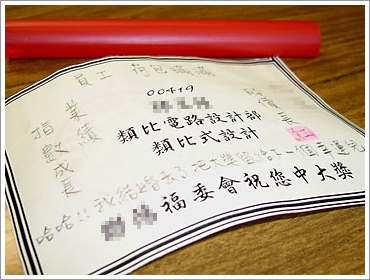 員工 荷包滿滿
00419
業績
指數成長
類比電路設計部
類比式設計
哈哈!!我結婚去了把大獎留給下一個幸運兒
福委會祝您中大獎